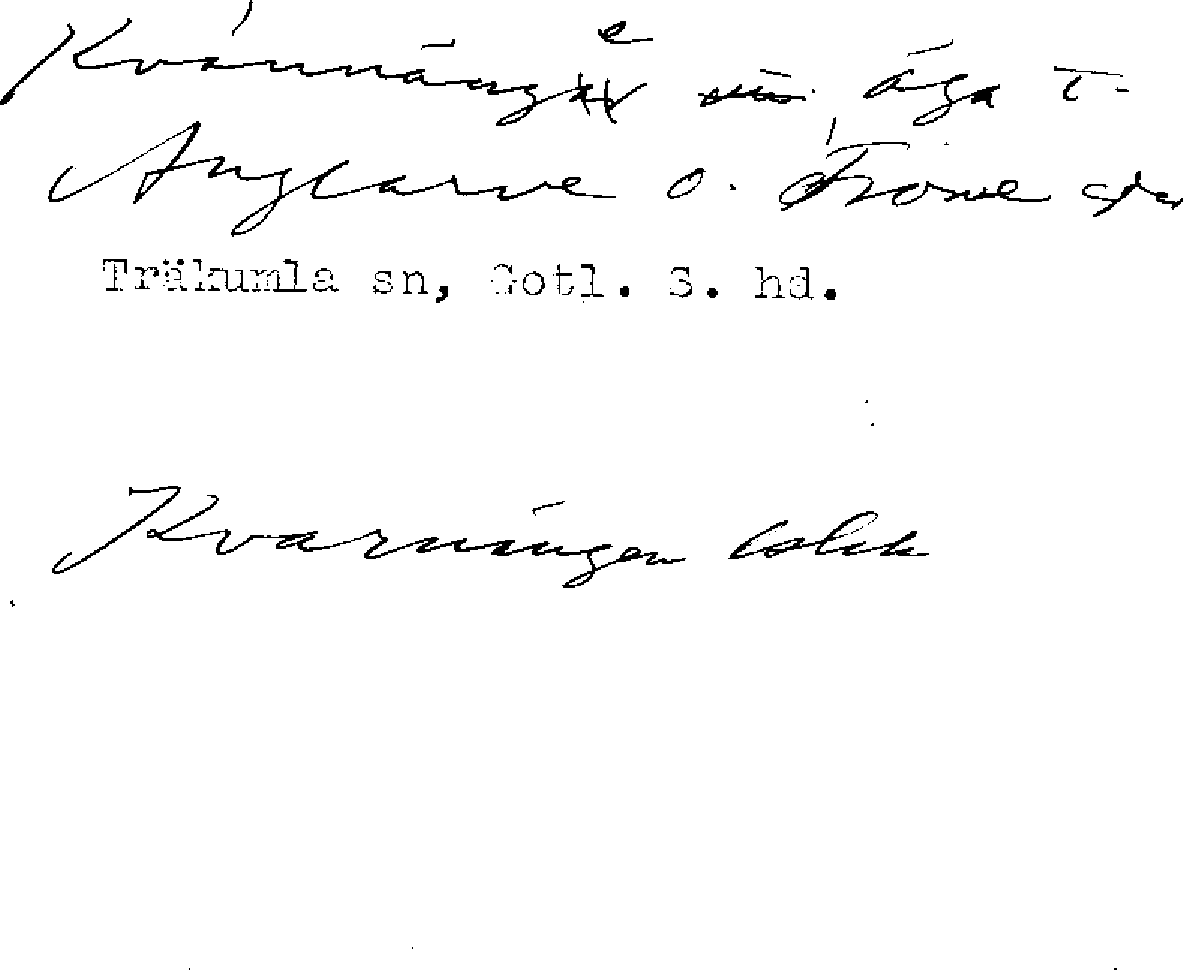 Kvánnänge äga t.
Anglarve o. Trone
Träkumla sn, Gotl. S. hd.
Kvarnängen